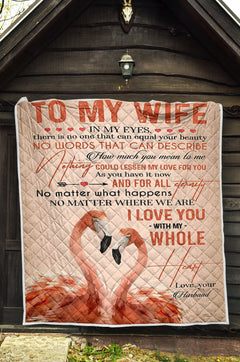 TO MY WIFE
IN MY EYES,
there is no one that can equal your beauty
NO WORDS THAT CAN DESCRIBE
How much you mean to me
Nothing COULD LESSEN MY LOVE FOR YOU
As you have it now
AND FOR ALL eternity
No matter what happens
NO MATTER WHERE WE ARE
I LOVE YOU
WITH MY
WHOLE
Heart
Love, your
Husband